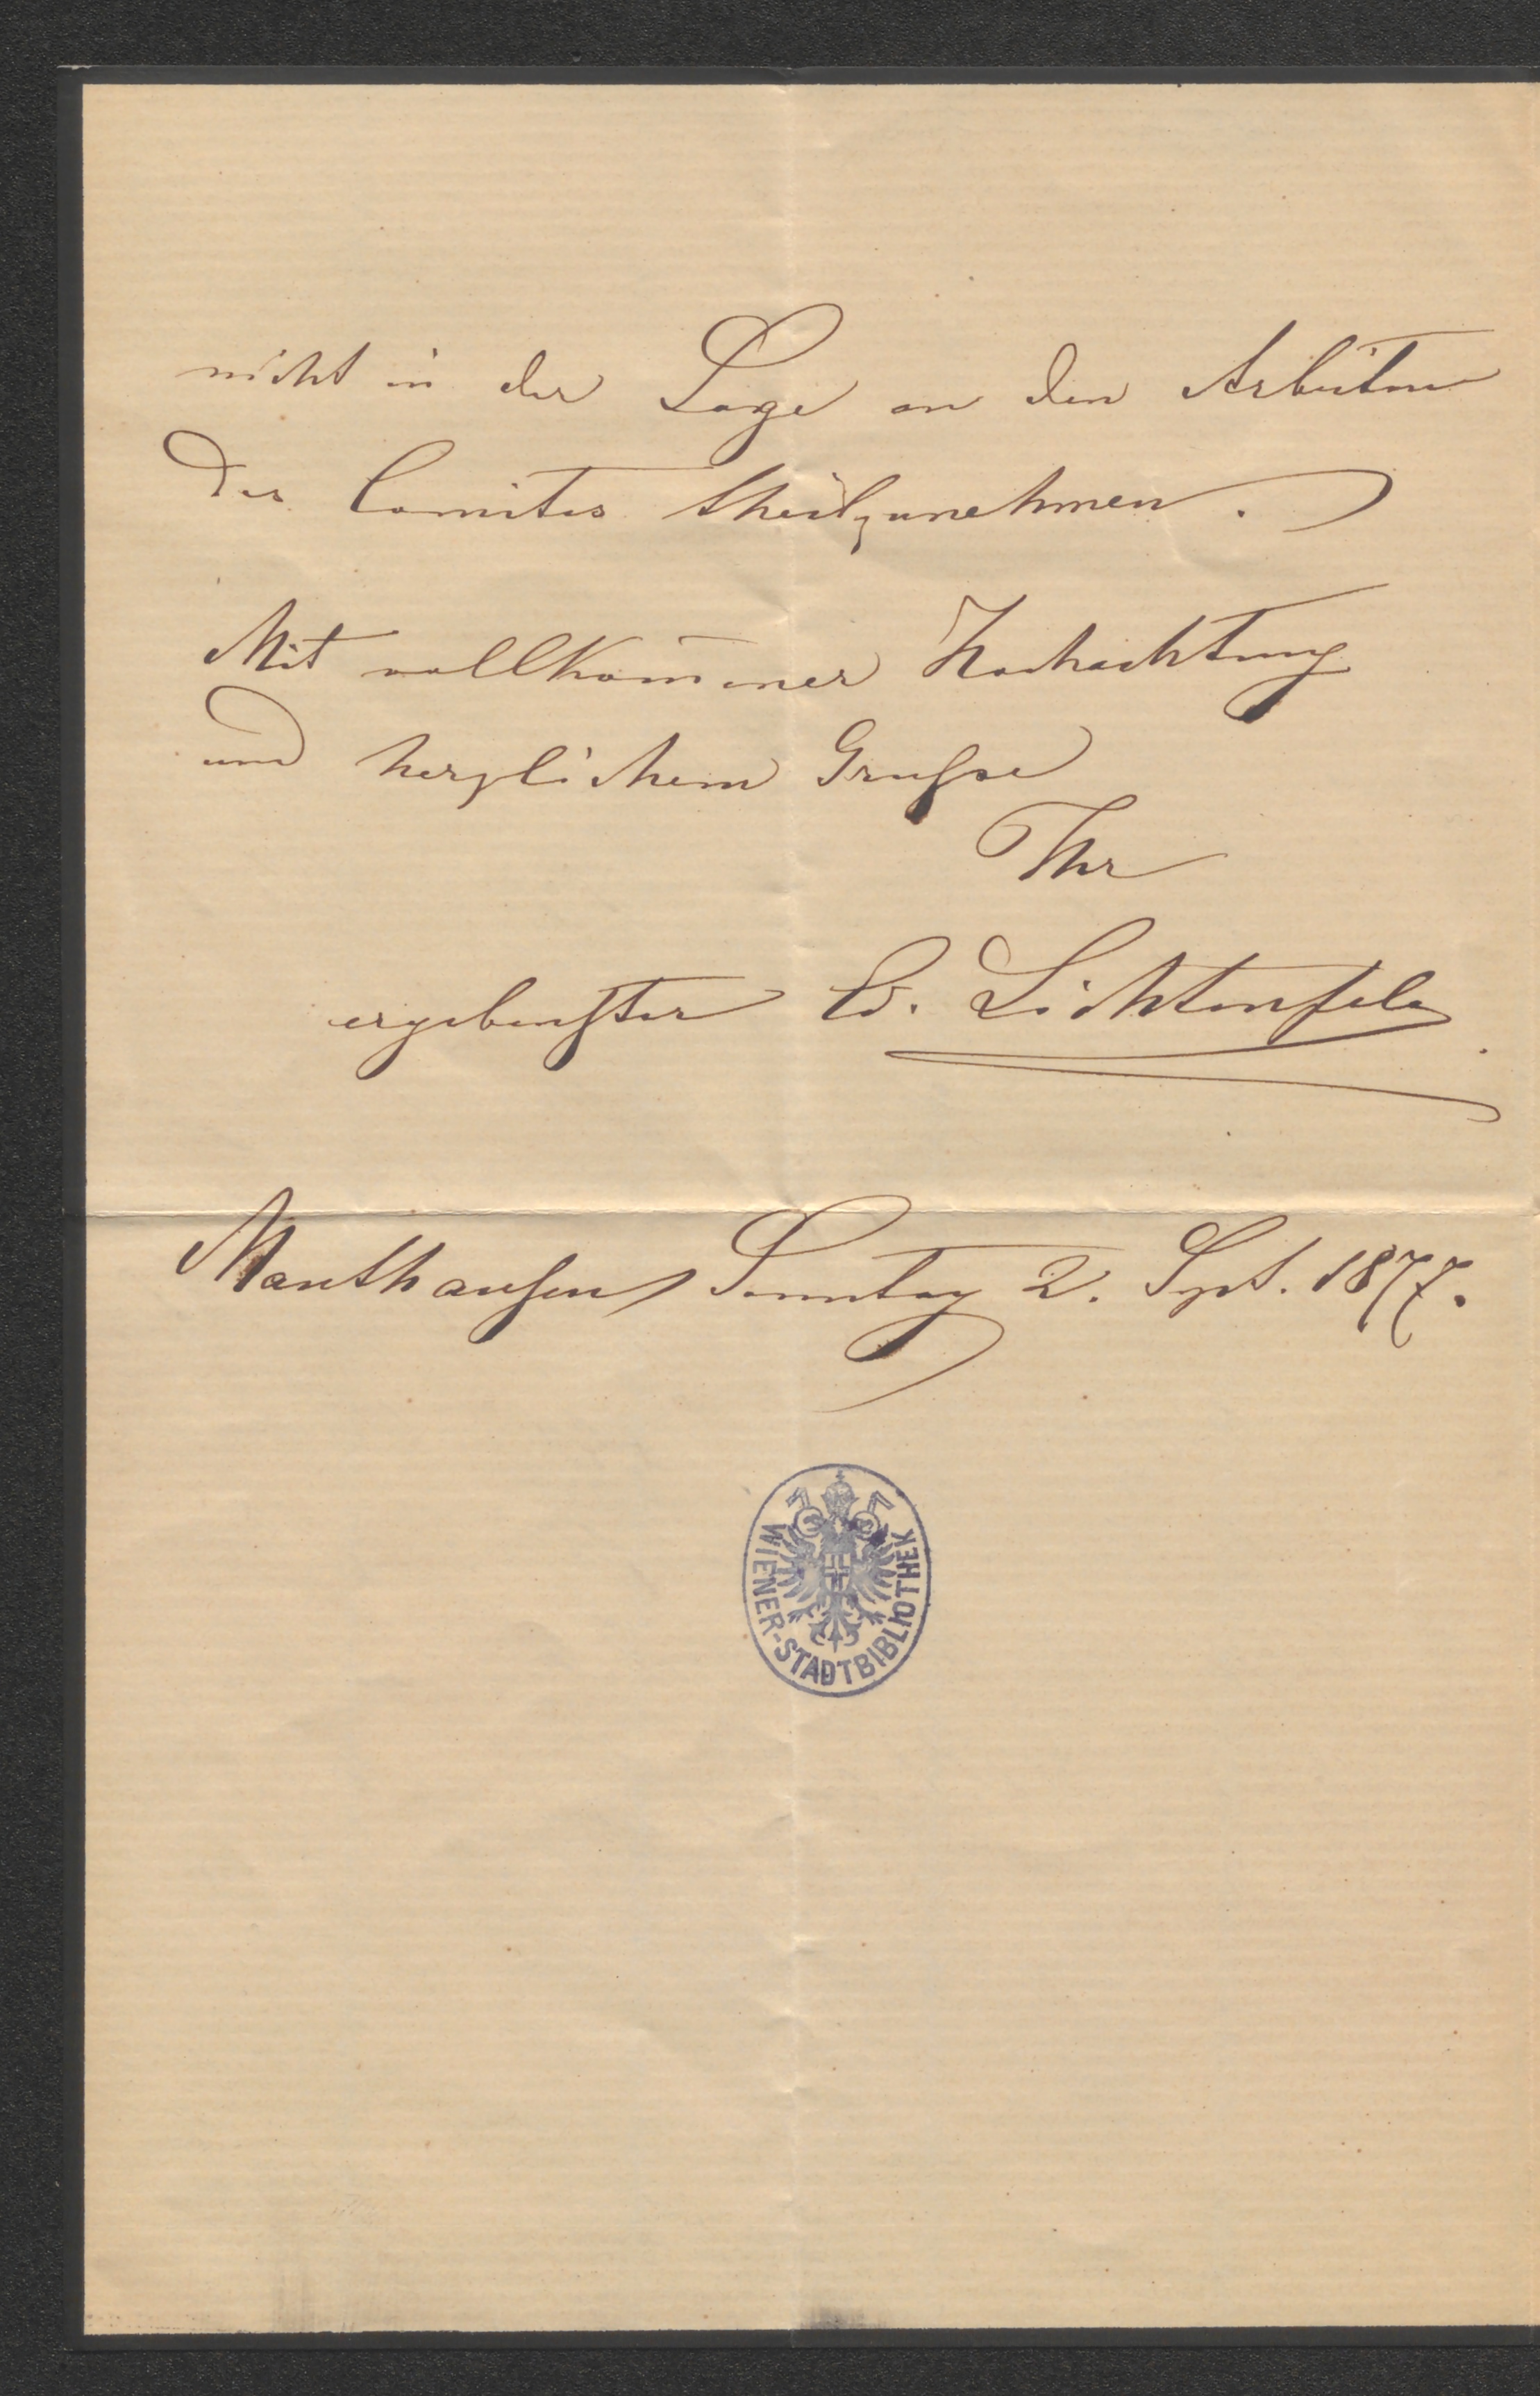 nicht in der Lage an den Arbeiten
des Comites theilzunehmen.
Mit vollkom̄ener Hochachtung
und herzlichem Gruße
Ihr
ergebenster Ed. Lichtenfels
Mauthausen Sonntag 2. Sept. 1877.
WIENER-STADTBIBLIOTHEK